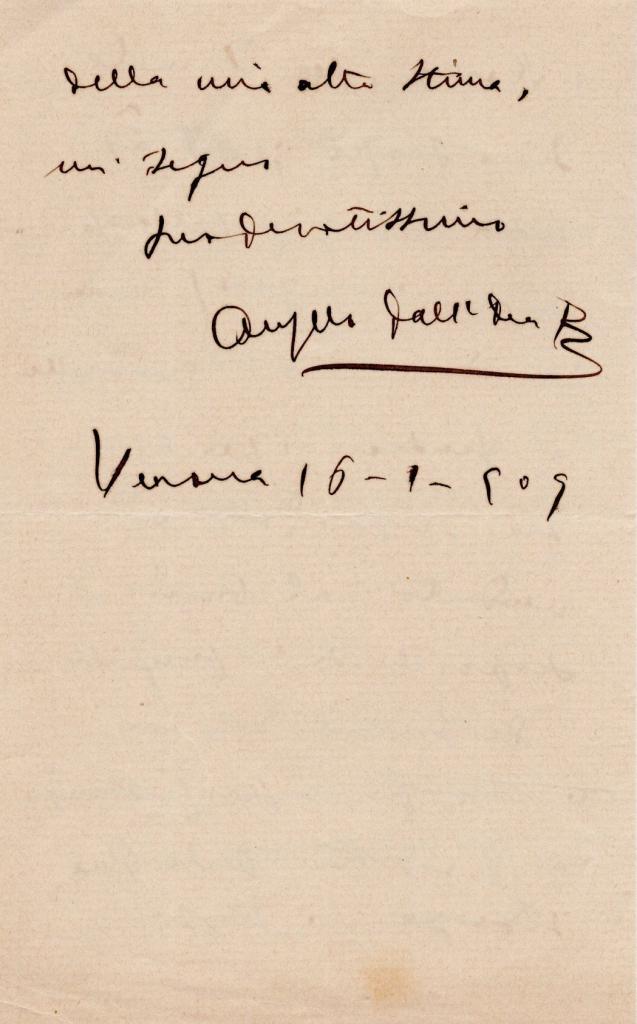 della mia alta stima,
mi segno
suo devotissimo
Angelo Dall'Oca B
Verona 16-1-909